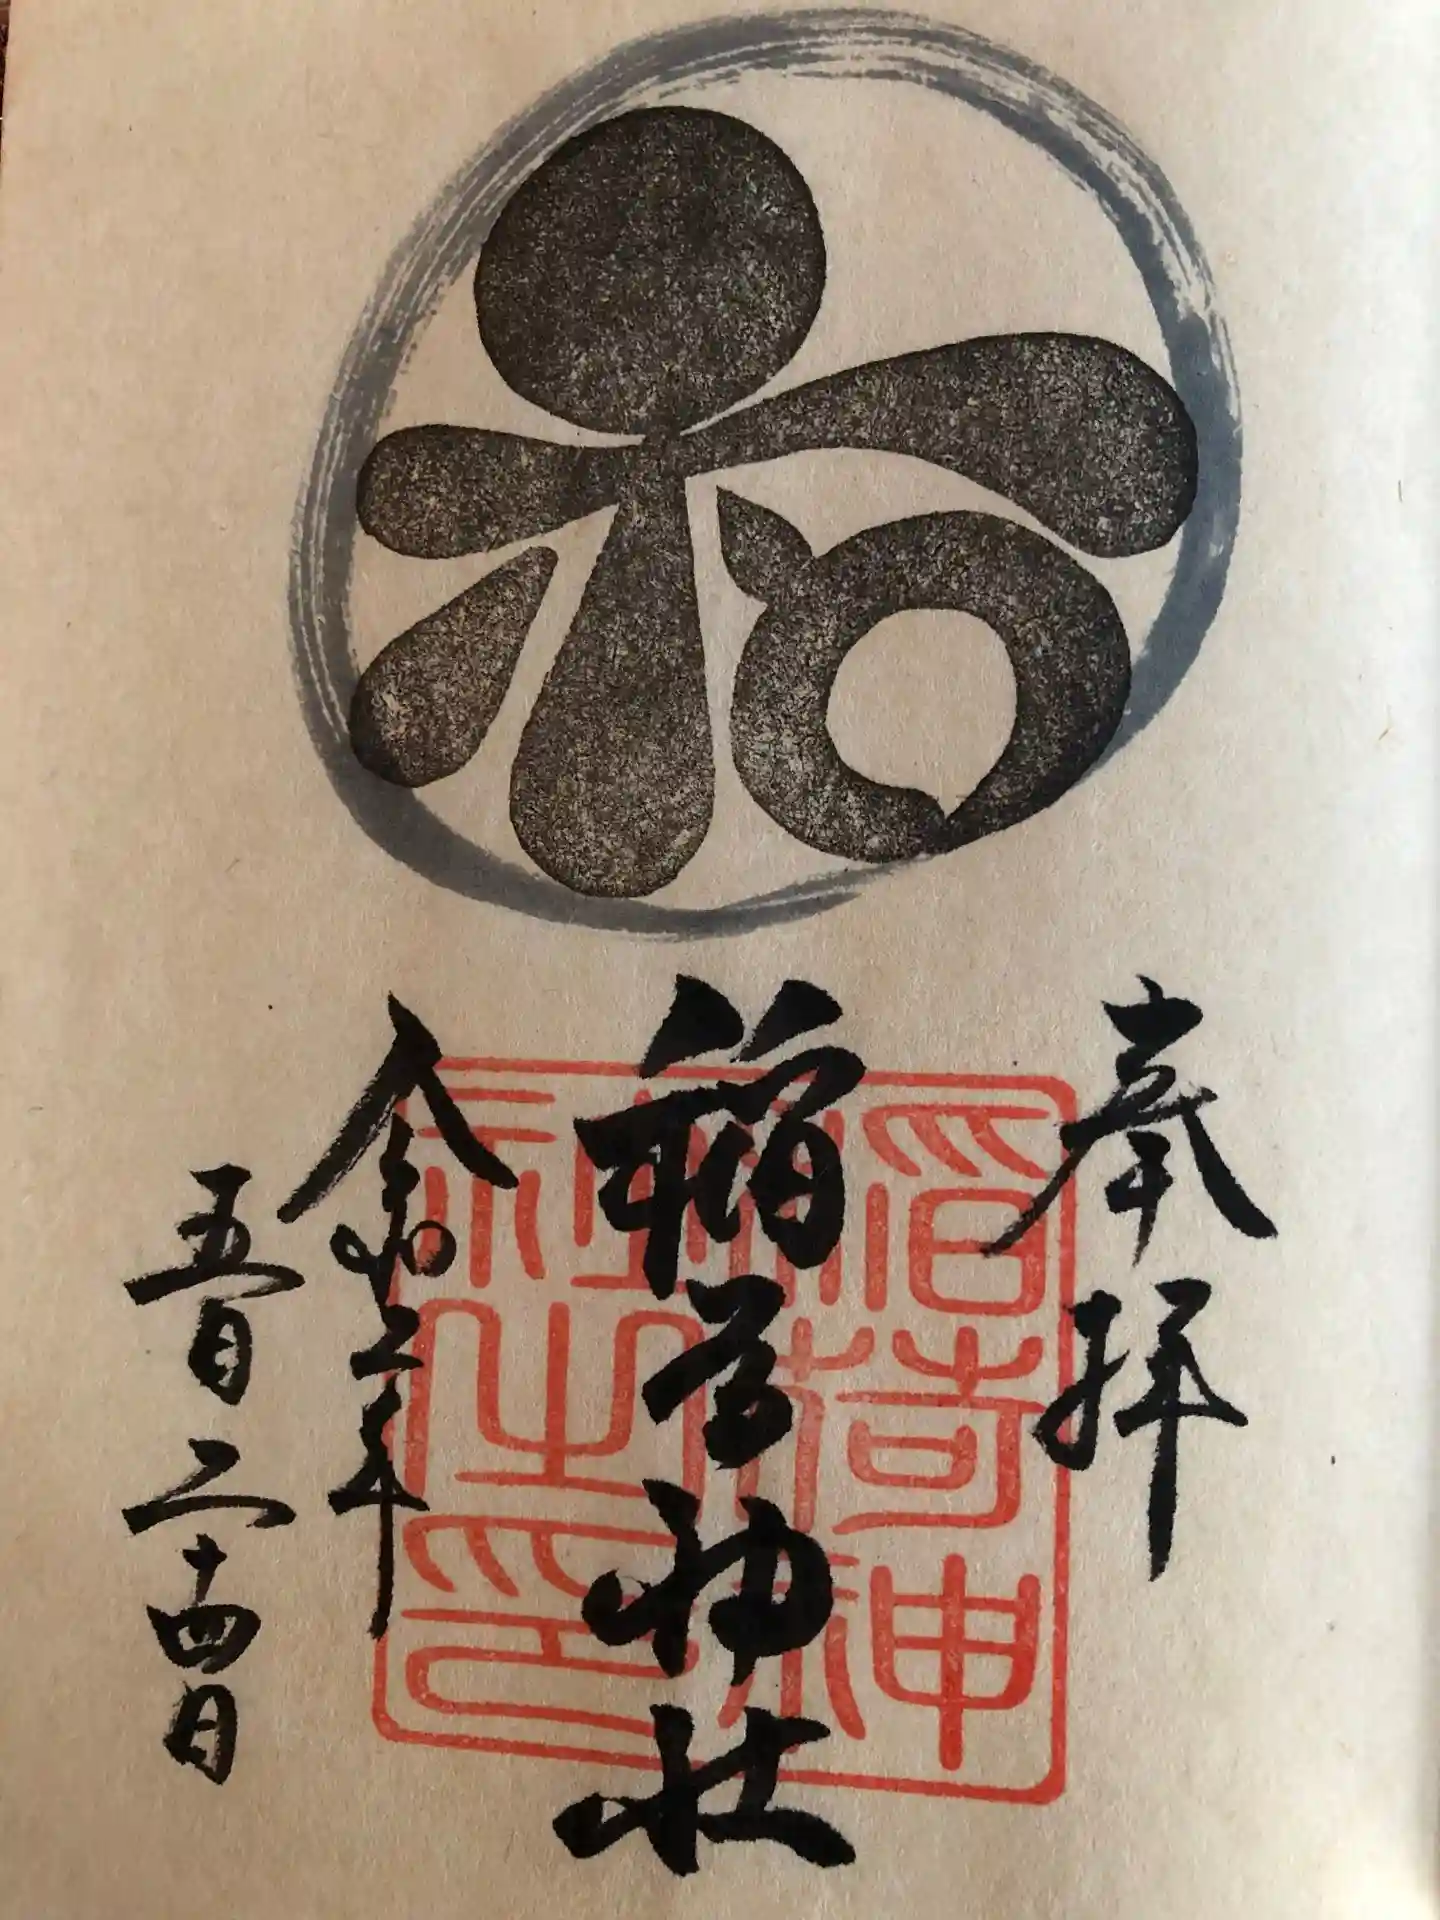 和
奉拝
稲荷神社
稲荷神社之印
令和二年
五月二十四日